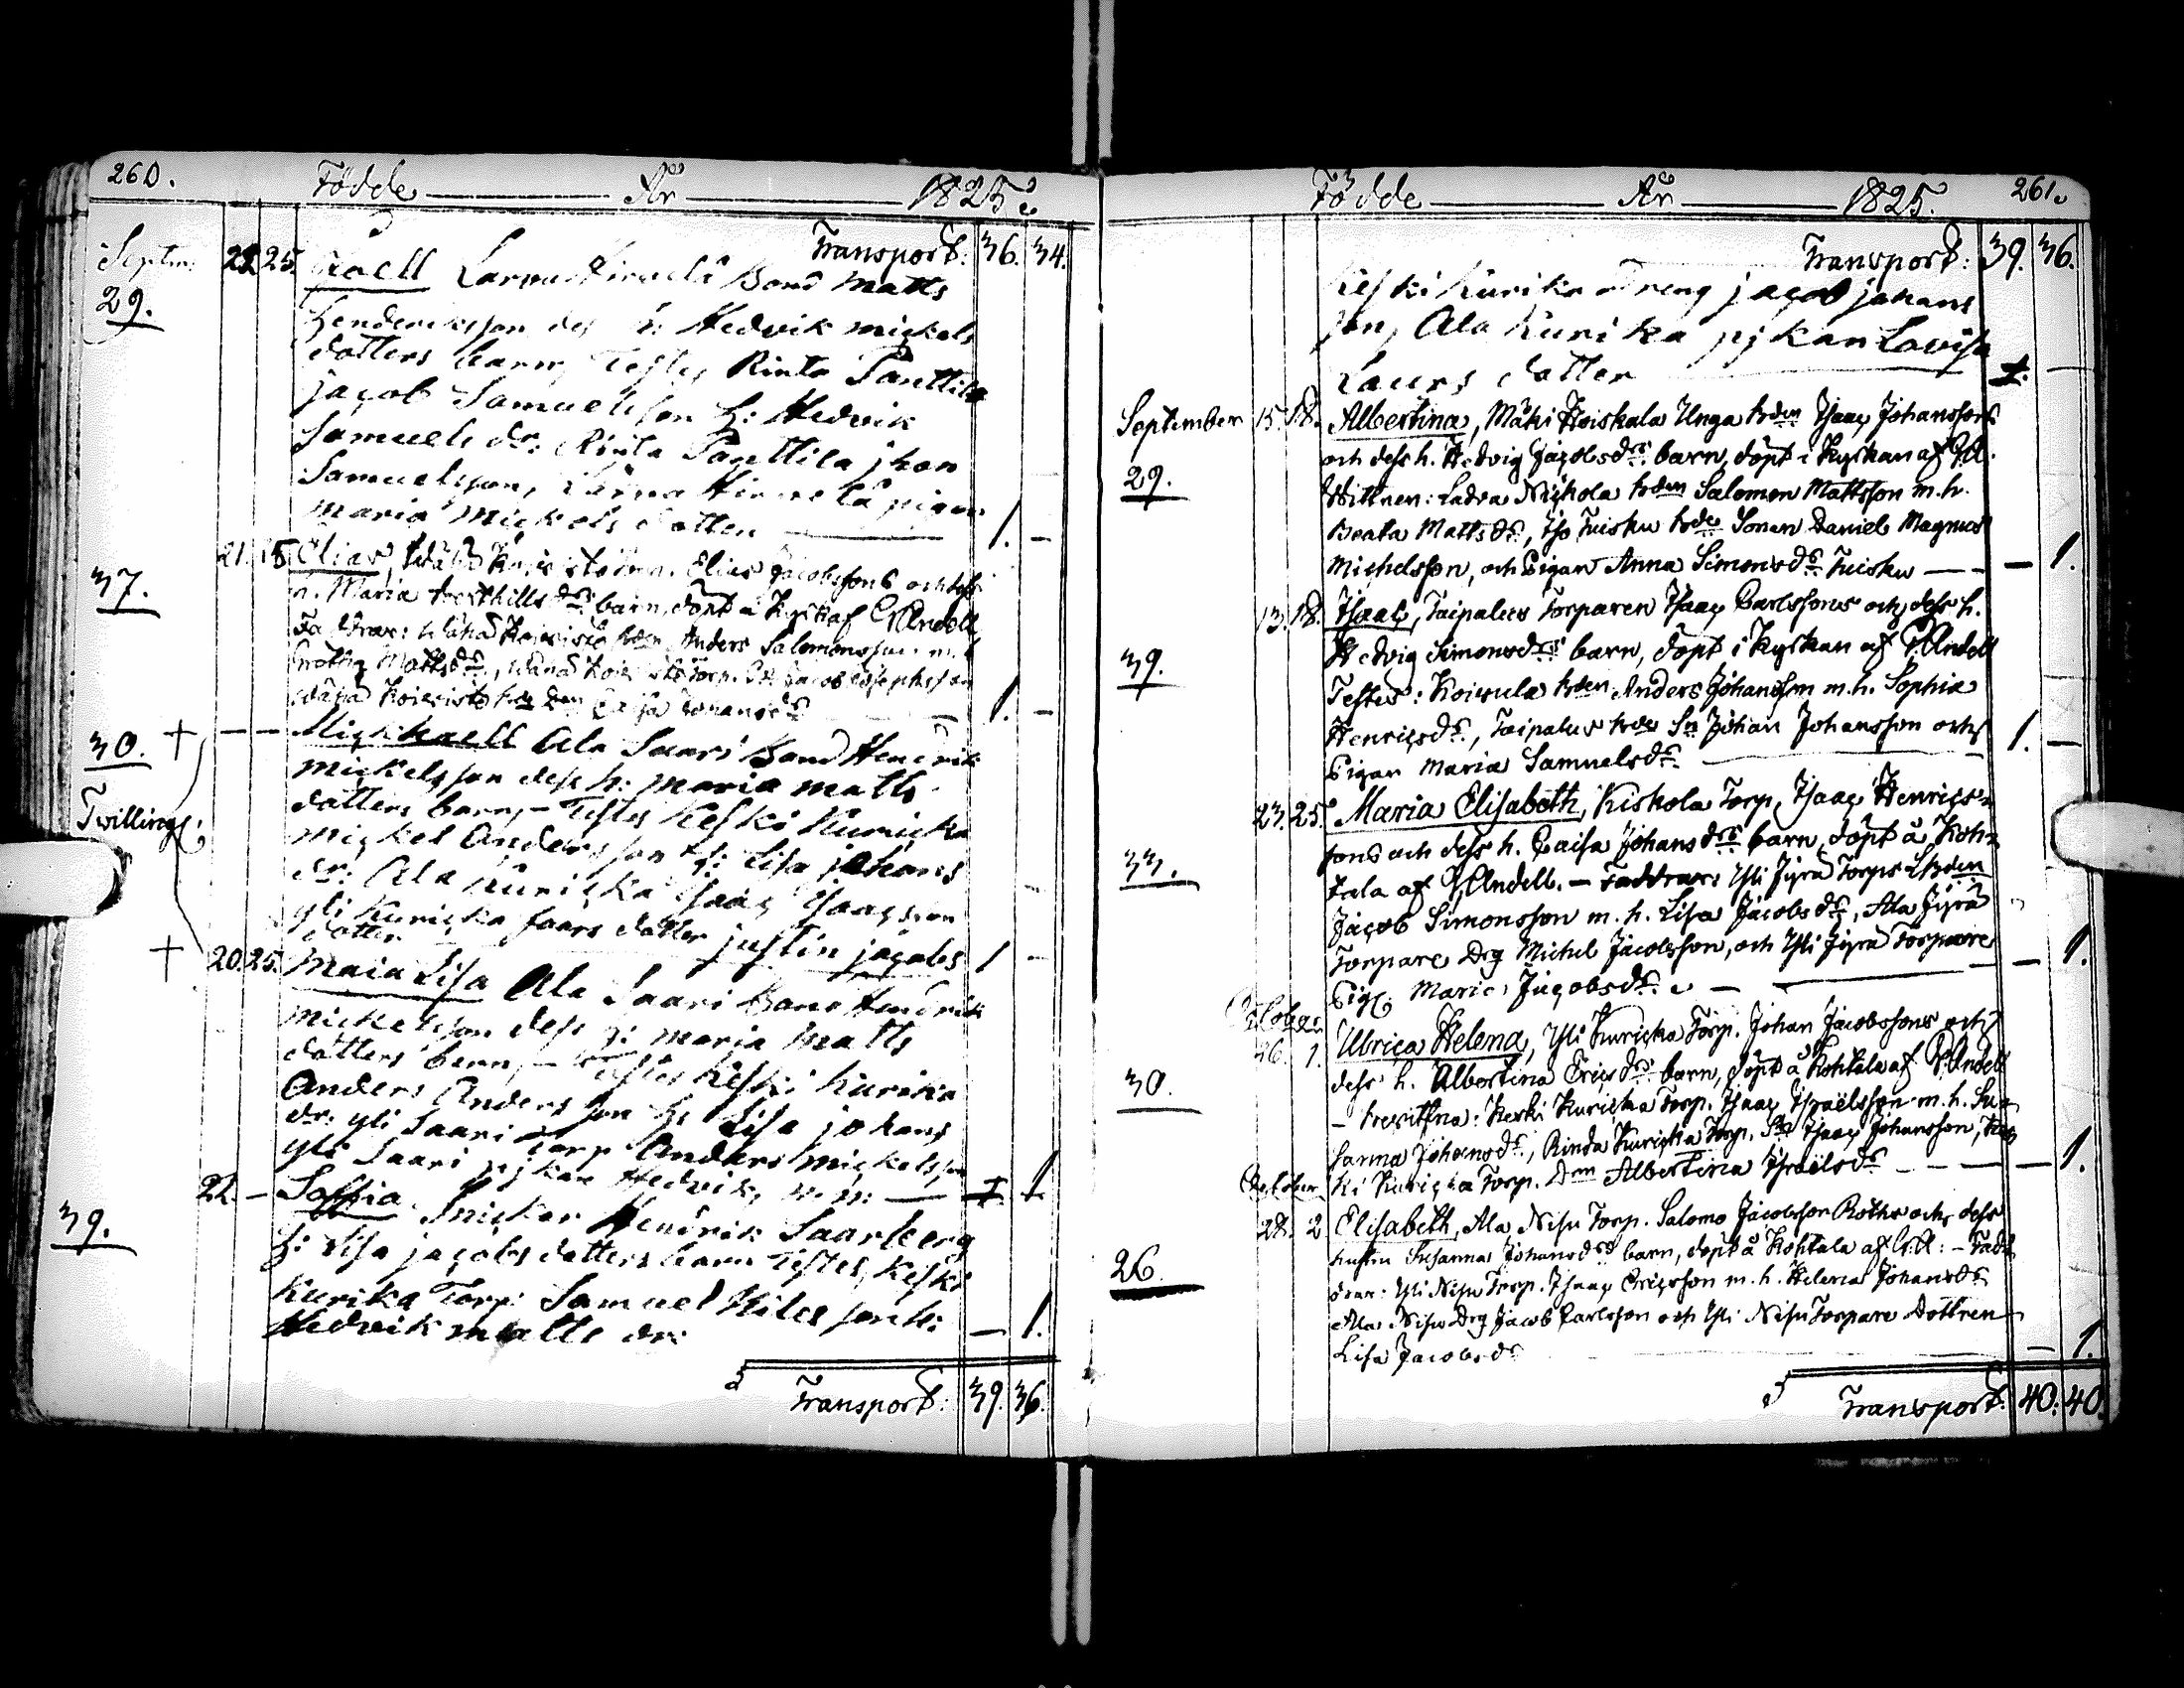 260.
Födde År 1825.
Transport: 36. 34.
Septem: 22. 25. Larvu Bond Matts
29.
Henderiksson des h: Hedvik mickels
datters barn, Testes Rinta Panttila
jacob Samuelsson h: Hedvik
Samuels dr: Rinta Panttila johan
Samuelsson,
maria Mickels datter 1. –
21. 18. Elias, Elias Jacobssons och dess
37.
h. Maria barn, döpt i Kyrk af And ell
Faddrar: Anders Salomonsson m. h.
Matts dr, Jacob Josephsson
Koivisto Caisa Johans dr 1. –
30. + – – Mickhaell Ala Saari Bond Hendrik
mickelsson dess h: maria matts
Twilling:
datters barn, – Testes Keski Kuricka
mickel Andersson h: Lisa johans
dr: Ala Kuricka Isaac Isaacsson
yli Kuricka justin jacobs
datter 1 –
+ 20. 25. Maia Lisa Ala Saari Bond Hendrik
mickelsson dess h: maria Matts
datters barn, – Testes Keski Kurika
Anders Andersson h: Lisa johans
dr: yli Saari Torp Anders mickelsson
yli Saari pjkan Hedvik, 1
22. – Soffia Snickar Hendrik Saarberg
39.
h: Lisa jacobs datters barn Testes, Keski
Kurika Torp: Samuel h:
Hedvik matts dr: – 1.
Transport: 39. 36.
Födde År 1825. 261.
Transport: 39. 36.
Keski Kurika Dreng jacob johans
son, Ala Kurika pjkan Lovisa
Laurs datter 1. –
September 15. 18. Albertina, Mäki Hoiskala Unga bden Isaac Johanssons
och dess h. Hedvig Jacobsdrs barn, döpt i Kyrkan af P.A.
29.
Wittnen: Ladva bden Salomon Mattsson m. h.
Beata Mattsdr, bde Sonen Daniel Magnus
Michelsson, och Pigan Anna Simonsdr – 1.
13. 18. Isaac, Taipalus Torparen Isaac Carlssons och dess h.
39.
Hedvig Simonsdrs barn, döpt i Kyrkan af P. Andell
Testes: Koivula bden Anders Johansson m. h. Sophia
Henricsdr, Taipalus bde Sn Johan Johansson och
Pigan Maria Samuelsdr. 1. –
23. 25. Maria Elisabeth, Kiskola Torp, Isaac Henrics-
sons och dess h. Caisa Johansdrs barn, döpt å Koh-
33.
tala af P. Andell. – Faddrar: Yli Jyrä Torps
Jacob Simonsson m. h. Lisa Jacobsdr, Ala Jyrä
Torpare Drg Michel Jacobsson, och Yli Jyrä Torpare
Pig: Maria Jacobsdr. – 1.
October
26. 1. Ulrica Helena, Yli Kuricka Torp. Johan Jacobssons och
dess h. Albertina Ericsdrs barn, döpt å Kohtala af P. Andell
30.
– Keski Kuricka Torp. Isaac Israëlsson m. h. Su-
sanna Johansdr, Rinda Kuricka Torp. Sn Isaac Johansson, Kes
ki Kuricka Torp. Dn Albertina Israëlsdr – 1.
October
28. 2 Elisabeth, Ala Nisu Torp. Salomo Jacobsson Roths och dess
hustru Susanna Johansdrs barn, döpt å Kohtala af P.A: – Fad-
26.
drar: Yli Nisu Torp. Isaac Ericsson m. h. Helena Johansdr
Ala Nisu Drg Jacob Carlsson och Yli Nisu Torpare Dottren
Lisa Jacobsdr – 1.
Transport: 40. 40.